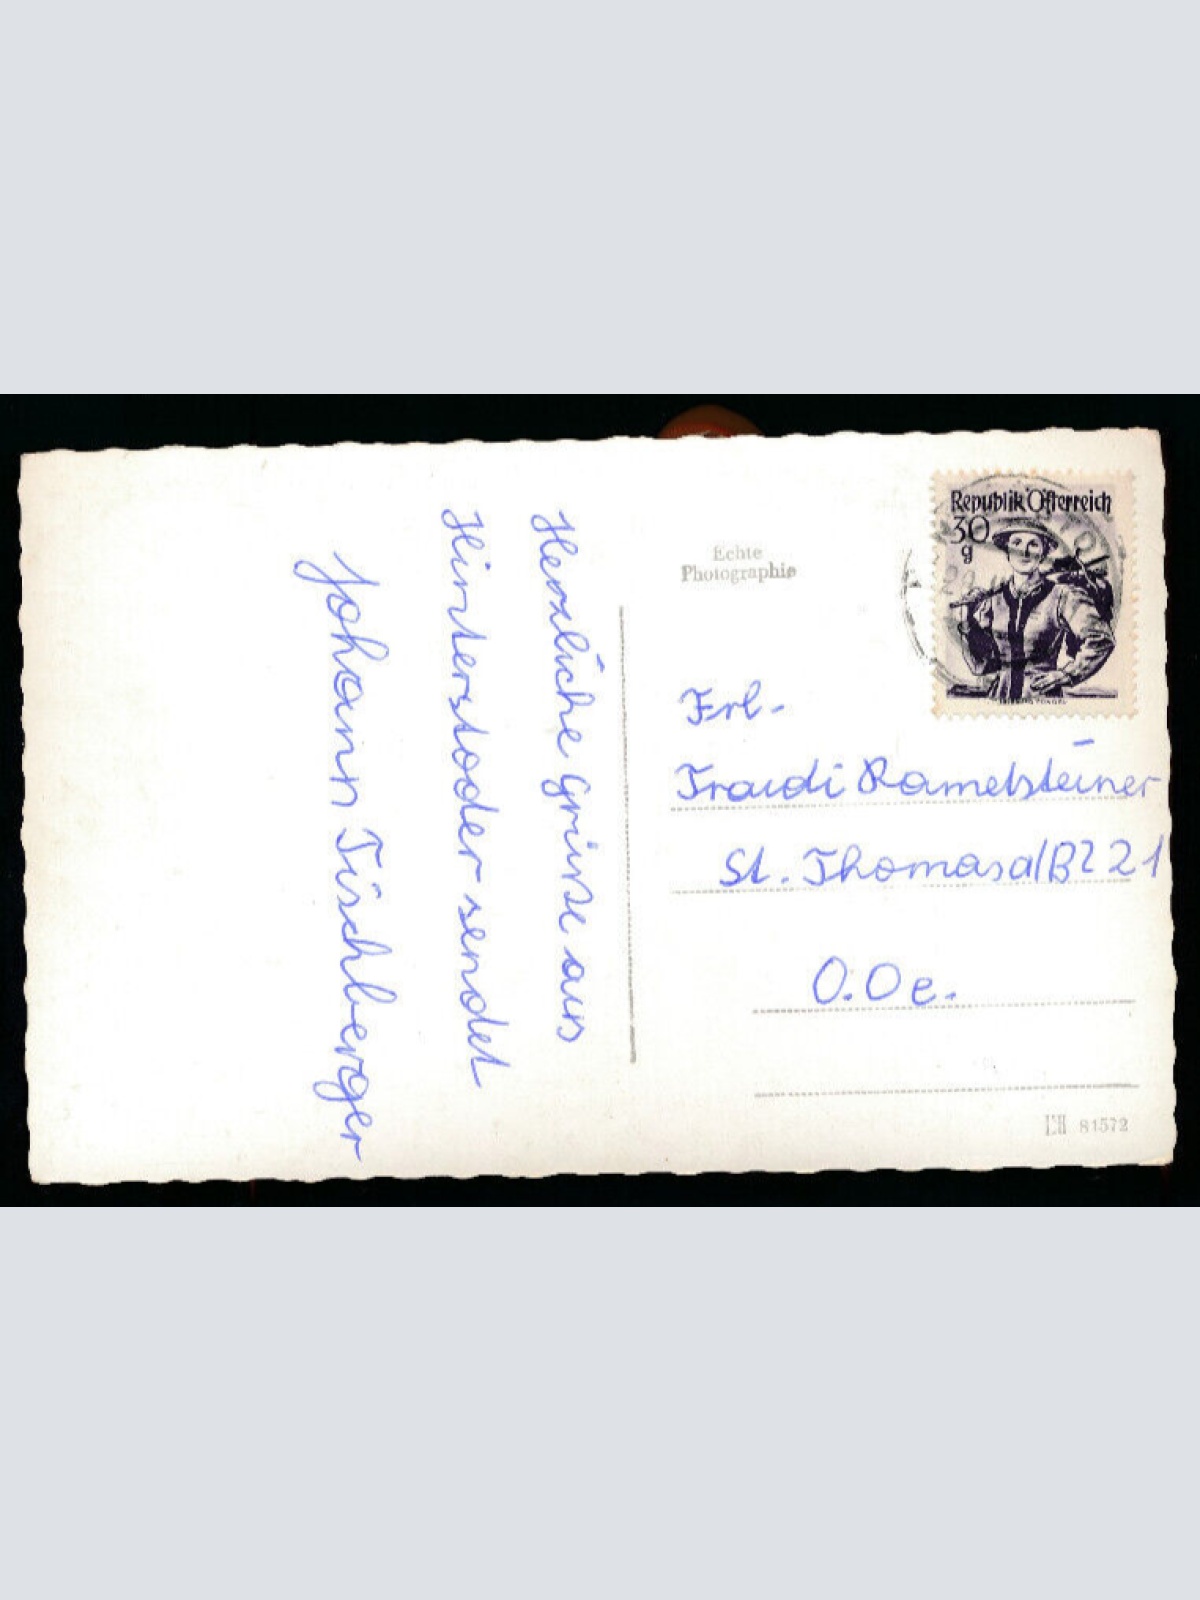 Herzliche Grüße aus
Hinterstoder sendet
Johann Tischberger
Echte
Photographie
Republik Österreich
30
g
Frl.
Traudi Ramelsteiner
St. Thomas a/Bz 21
O.Oe.
81572